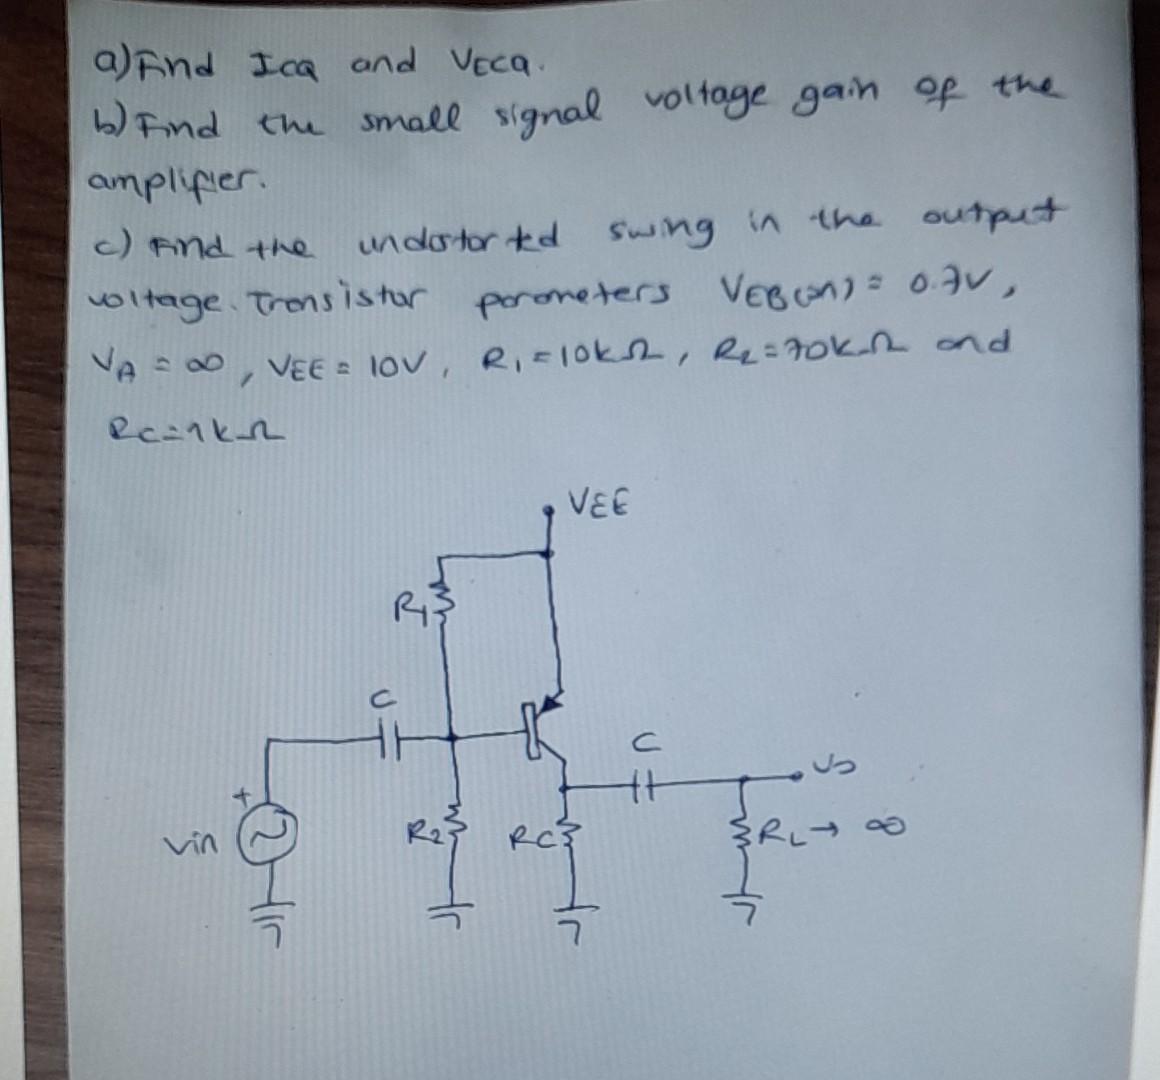 a) Find ICQ and VECQ.
b) Find the small signal voltage gain of the
amplifier.
c) Find the undistorted swing in the output
voltage. Transistor parameters VEB(on) = 0.7V,
VA = ∞, VEE = 10V, R1 = 10kΩ, R2 = 70kΩ and
RC = 1kΩ
VEE
R1
C
C
+
Vo
Vin
R2
RC
RL → ∞